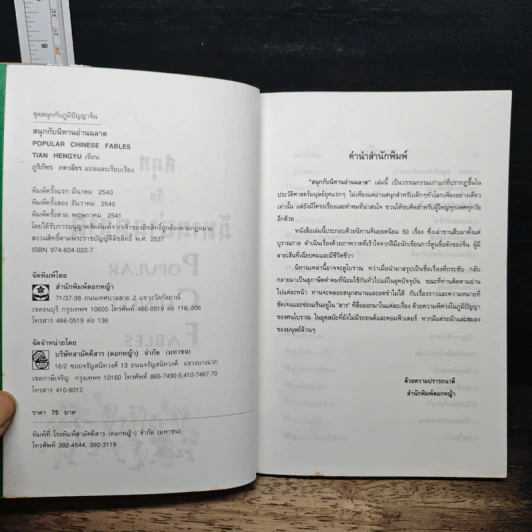 ชุดสนุกกับภูมิปัญญาจีน
สนุกกับนิทานอ่านฉลาด
POPULAR CHINESE FABLES
TIAN HENGYU เขียน
ภูริภัทร ภควลีธร แปลและเรียบเรียง
พิมพ์ครั้งแรก มีนาคม 2540
พิมพ์ครั้งสอง ธันวาคม 2540
พิมพ์ครั้งสาม พฤษภาคม 2541
โดยได้รับการอนุญาตจัดพิมพ์จากเจ้าของลิขสิทธิ์ถูกต้องตามกฎหมาย
สงวนสิทธิ์ตามพระราชบัญญัติลิขสิทธิ์ พ.ศ. 2537
ISBN 974-604-022-7
จัดพิมพ์โดย
สำนักพิมพ์ดอกหญ้า
71/37-38 ถนนเทศบาลสาย 2 แขวงวัดกัลยาณ์
เขตธนบุรี กรุงเทพฯ โทรศัพท์ 466-0519 ต่อ 116,
โทรสาร 466-0519 ต่อ 136
จัดจำหน่ายโดย
บริษัทสามัคคีสาร (ดอกหญ้า) จำกัด (มหาชน)
16/2 ซอยจรัญสนิทวงศ์ 13 ถนนจรัญสนิทวงศ์ แขวงบางแวก
เขตภาษีเจริญ กรุงเทพฯ 10160 โทรศัพท์ 865-7490-5,410-7467-70
โทรสาร 410-8012
ราคา 75 บาท
พิมพ์ที่ โรงพิมพ์สามัคคีสาร (ดอกหญ้า) จำกัด (มหาชน)
โทรศัพท์ 392-4544, 392-3115
คำนำสำนักพิมพ์
"สนุกกับนิทานอ่านฉลาด" เล่มนี้ เป็นวรรณกรรมเก่าแก่ที่ปรากฏขึ้นใน
ประวัติศาสตร์มนุษย์ยุคแรกๆ ไม่เพียงแต่อ่านสนุกสำหรับเด็กๆทั่วโลกเพียงอย่างเดียว
เท่านั้น แต่ยังมีโครงเรื่องและทำคนที่น่าสนใจ ชวนให้ขบคิดสำหรับผู้ใหญ่ทุกเพศทุกวัย
อีกด้วย
หนังสือเล่มนี้ประกอบด้วยนิทานจีนยอดนิยม 50 เรื่อง ซึ่งเล่าขานสืบมาตั้งแต่
บุราณกาล ดำเนินเรื่องด้วยภาพวาดที่เร้าใจจากฝีมือนักเขียนการ์ตูนชื่อดังของจีน ผู้มี
ลายเส้นที่เฉียบคมและมีชีวิตชีวา
นิทานเหล่านี้อาจจะดูโบราณ ทว่าเมื่อนำมาสรุปเป็นชื่อเรื่องที่กระชับ กลับ
กลายมาเป็นสุภาษิตคำคมที่นิยมใช้กันทั่วไปแม้ในยุคปัจจุบัน ขณะที่ท่านติดตามอ่าน
ไปแต่ละหน้า ท่านจะพลอยสนุกสนานและอดขำไม่ได้ กับเรื่องราวและความหมายที่
ชัดเจนและซ่อนเร้นอยู่ใน "สาร" ที่สื่อออกมาในแต่ละเรื่อง ด้วยความพิศวงในภูมิปัญญา
ของคนโบราณ ในยุคสมัยที่ยังไม่มีรถยนต์และคอมพิวเตอร์ หากมีแต่ระฆังและสมอง
ของมนุษย์ล้วนๆ
ด้วยความปรารถนาดี
สำนักพิมพ์ดอกหญ้า